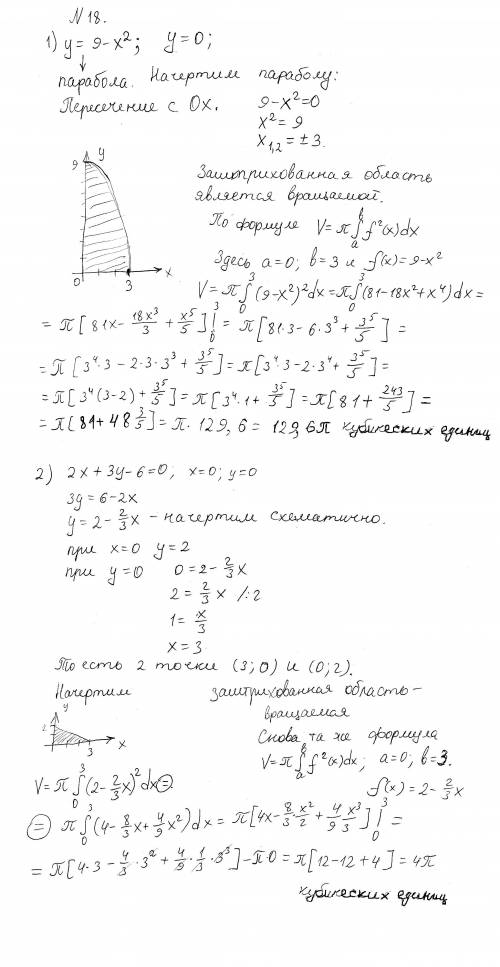 N 18.
1) y = 9 - x²; y = 0;
парабола. Начертим параболу:
Пересечение с Ox. 9 - x² = 0
x² = 9
x₁,₂ = ± 3.
9 y
0 3 x
Заштрихованная область
является вращаемой.
По формуле V = π∫ₐᵇ f²(x)dx
Здесь a = 0; b = 3 и f(x) = 9 - x²
V = π∫₀³ (9 - x²)²dx = π∫₀³ (81 - 18x² + x⁴)dx =
= π[81x - 18x³/3 + x⁵/5]|₀³ = π[81·3 - 6·3³ + 3⁵/5] =
= π[3⁴·3 - 2·3·3³ + 3⁵/5] = π[3⁴·3 - 2·3⁴ + 3⁵/5] =
= π[3⁴(3-2) + 3⁵/5] = π[3⁴·1 + 3⁵/5] = π[81 + 243/5] =
= π[81 + 48 3/5] = π·129,6 = 129,6π кубических единиц
2) 2x + 3y - 6 = 0; x = 0; y = 0
3y = 6 - 2x
y = 2 - 2/3 x - начертим схематично.
при x = 0 y = 2
при y = 0 0 = 2 - 2/3 x
2 = 2/3 x /:2
1 = x/3
x = 3
То есть 2 точки (3; 0) и (0; 2).
Начертим заштрихованная область -
вращаемая
y 2 3 x
Снова та же формула
V = π∫ₐᵇ f²(x)dx; a = 0; b = 3.
f(x) = 2 - 2/3 x
V = π∫₀³ (2 - 2/3 x)²dx =
= π∫₀³ (4 - 8/3 x + 4/9 x²)dx = π[4x - 8/3 · x²/2 + 4/9 · x³/3]|₀³ =
= π[4·3 - 4/3 · 3² + 4/9 · 1/3 · 3³] - π·0 = π[12 - 12 + 4] = 4π
кубических единиц